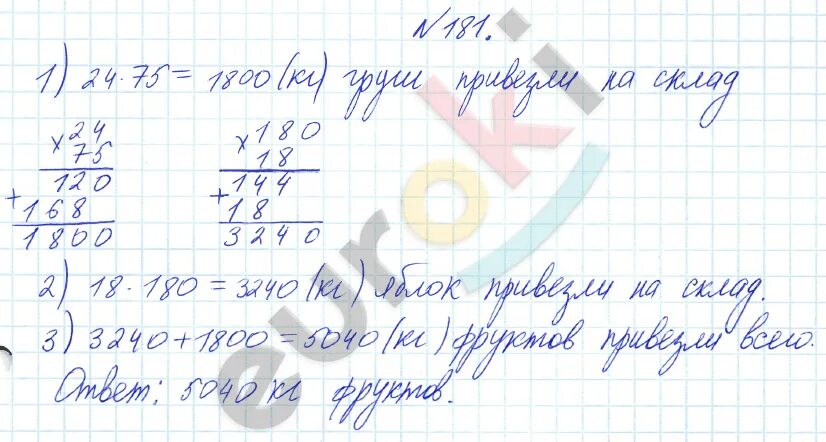 №181.
1) 24·75 = 1800 (кг) груш привезли на склад
× 24 × 180
75 18
120 144
+ 168 + 18
1800 3240
2) 18·180 = 3240 (кг) яблок привезли на склад.
3) 3240+1800 = 5040 (кг) фруктов привезли всего.
Ответ: 5040 кг фруктов.
euroki